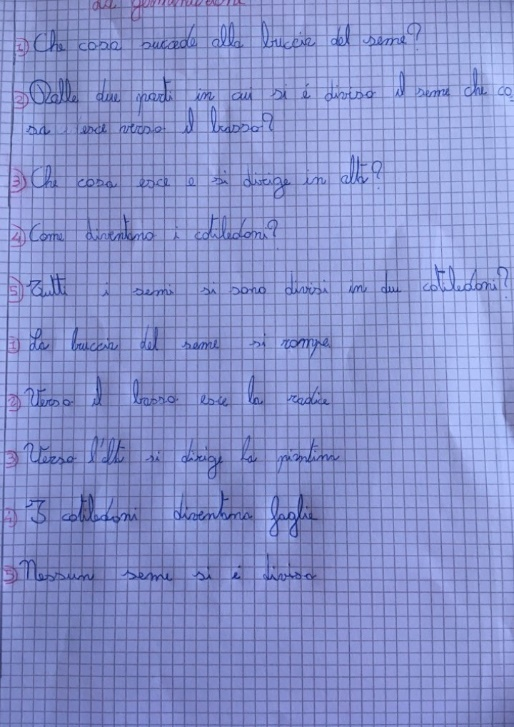 la germinazione
1) Che cosa succede alla buccia del seme?
2) Dalle due parti in cui si è diviso il seme che co
sa esce verso il basso?
3) Che cosa esce e si dirige in alto?
4) Come diventano i cotiledoni?
5) Tutti i semi si sono divisi in due cotiledoni?
1) La buccia del seme si rompe
2) Verso il basso esce la radice
3) Verso l'alto si dirige la piantina
4) I cotiledoni diventano foglie
5) Nessun seme si è diviso